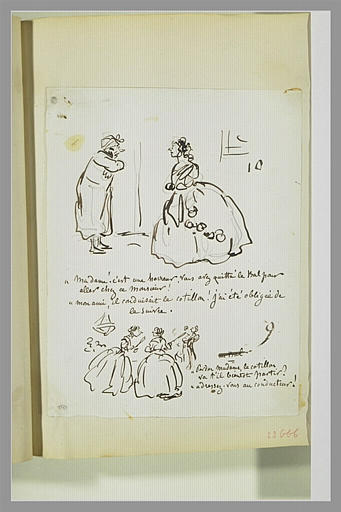 10
" Madame ! c'est une horreur. Vous avez quitté le bal pour
aller chez ce monsieur !
" mon ami il conduisait le cotillon. j'ai été obligée de
le suivre.
9
" Pardon madame le cotillon
va t'il bientôt partir ?
" adressez-vous au conducteur !
22666